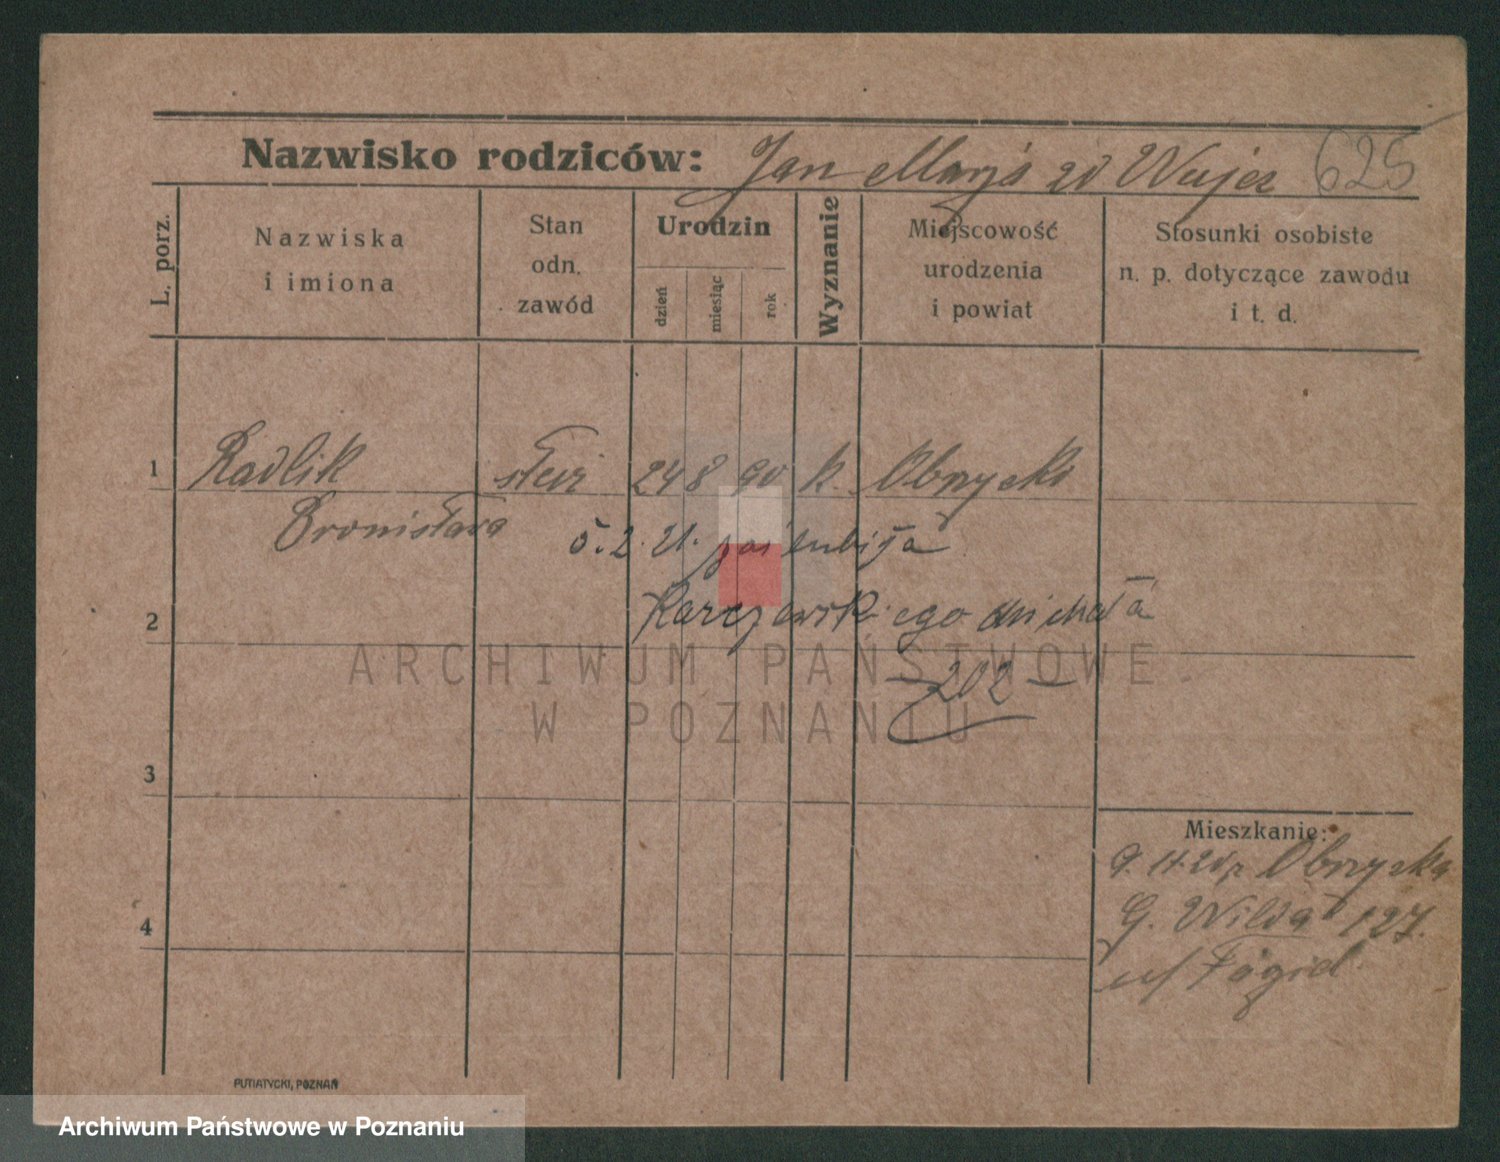 Nazwisko rodziców: Jan Marja zd Wujec 625
L. porz.
Nazwiska
i imiona
Stan
odn.
zawód
Urodzin
dzień
miesiąc
rok
Wyznanie
Miejscowość
urodzenia
i powiat
Stosunki osobiste
n. p. dotyczące zawodu
i t. d.
1 Radlik 24 8 90 k. Obrzycko
Bronisława 5.2.21. poślubiła
Karczewskiego Michała
2
— 202 —
ARCHIWUM PAŃSTWOWE
W POZNANIU
3
Mieszkanie:
Obrzycka
4 G. Wilda 127.
PUTIATYCKI, POZNAŃ
Archiwum Państwowe w Poznaniu